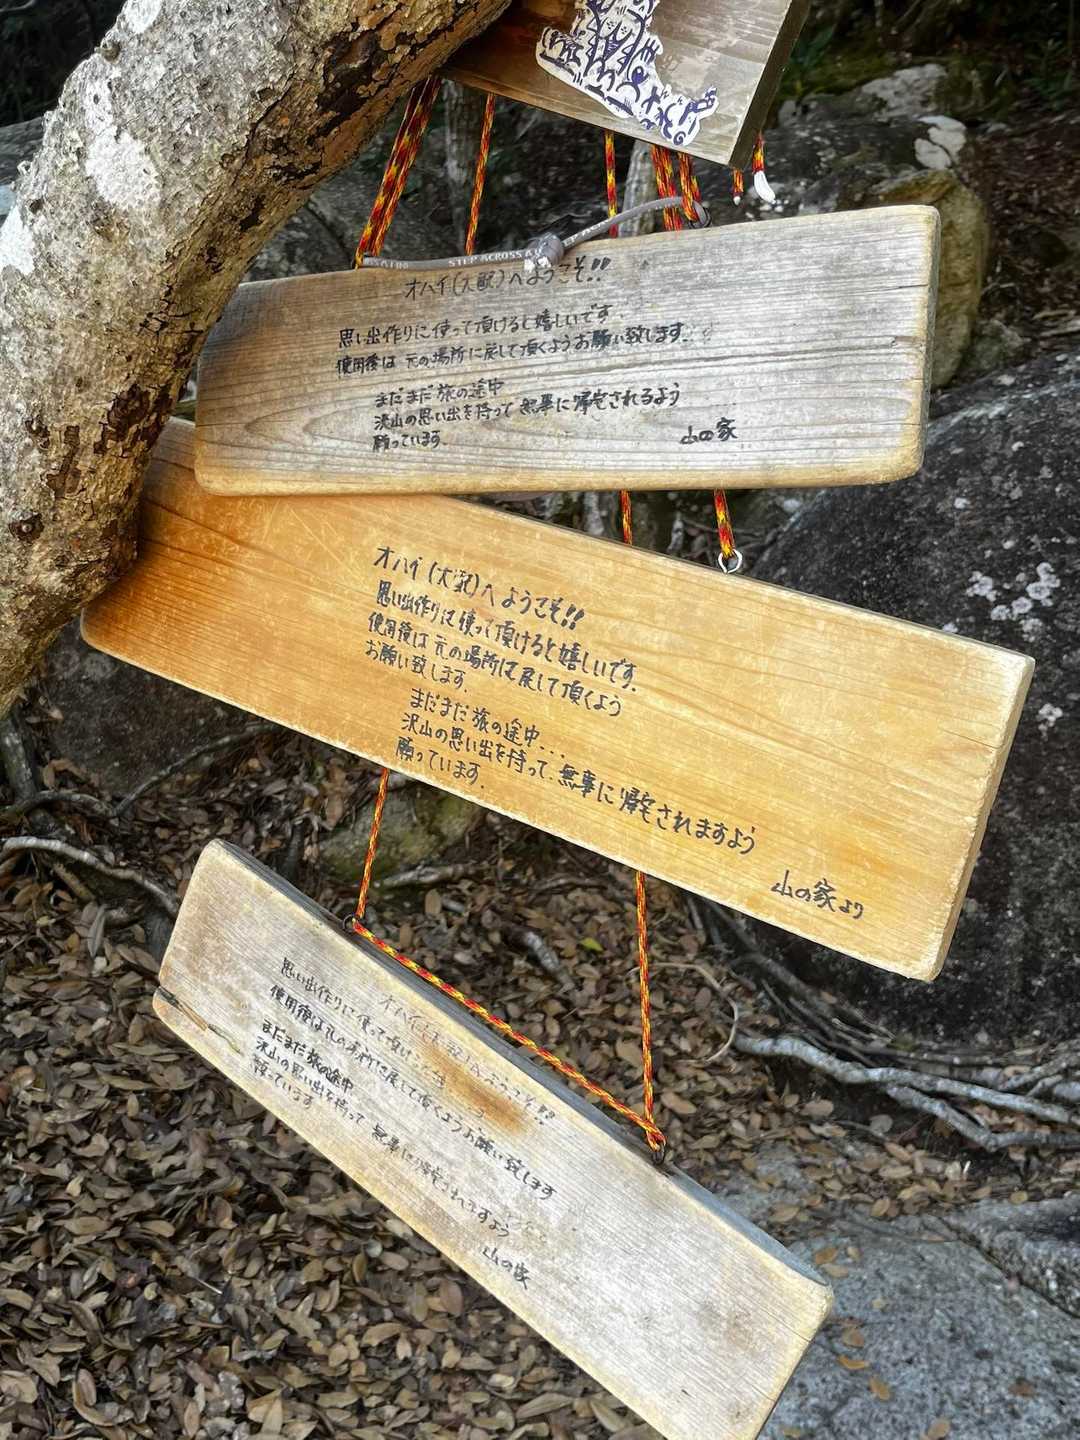 STEP ACROSS
オハイ(大配)へようこそ!!
思い出作りに使って頂けると嬉しいです.
使用後は 元の場所に戻して頂くようお願い致します..
まだまだ旅の途中
沢山の思い出を持って 無事に帰宅されるよう
願っています.
山の家
オハイ(大配)へ ようこそ!!
思い出作りに使って頂けると嬉しいです.
使用後は 元の場所に戻して頂くよう
お願い致します.
まだまだ旅の途中...
沢山の思い出を持って、無事に帰宅されますよう
願っています.
山の家より
オハイ へようこそ!!
思い出作りに使って頂けると
使用後は元の場所に戻して頂くようお願い致します
まだまだ旅の途中
沢山の思い出を持って 無事に帰宅されますよう
願っています
山の家